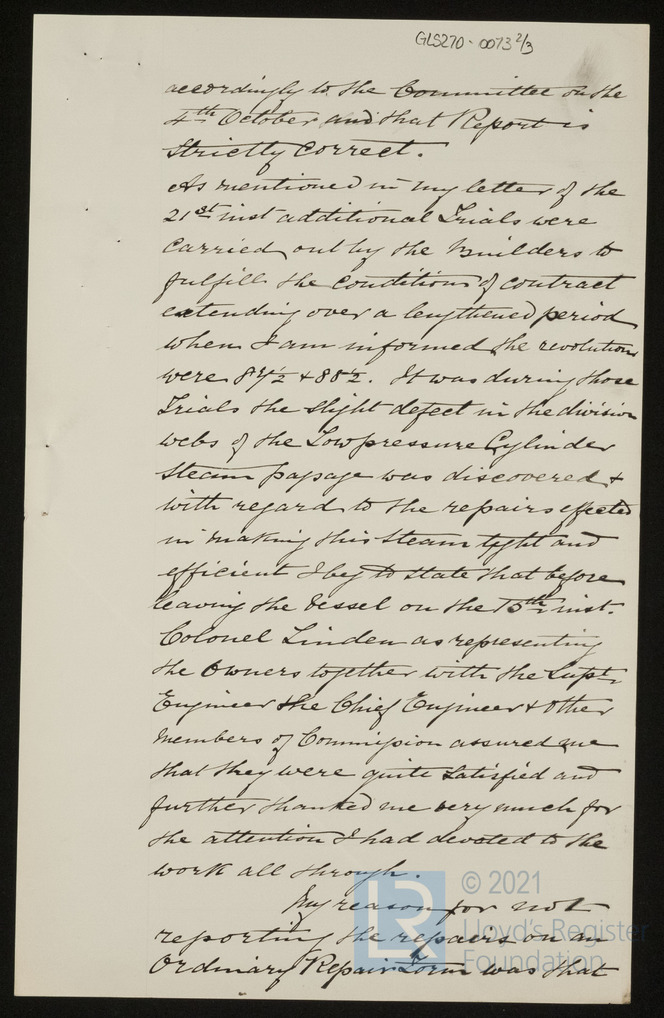 GLS270-0073 2/3
accordingly to the Committee on the
4th October and that Report is
strictly correct.
As mentioned in my letter of the
21st inst additional Trials were
carried out by the Builders to
fulfill the conditions of contract
extending over a lengthened period
when I am informed the revolutions
were 87½ & 88½. It was during those
Trials the slight defect in the division
webs of the Low pressure Cylinder
steam passage was discovered &
with regard to the repairs effected
in making this steam tight and
efficient I beg to state that before
leaving the Vessel on the 15th inst.
Colonel Linden as representing
the Owners together with the Supt
Engineer the Chief Engineer & other
members of Commission assured me
that they were quite satisfied and
further thanked me very much for
the attention I had devoted to the
work all through.
My reason for not
reporting the repairs on an
Ordinary Repair Form was that
LR
© 2021
Lloyd's Register
Foundation